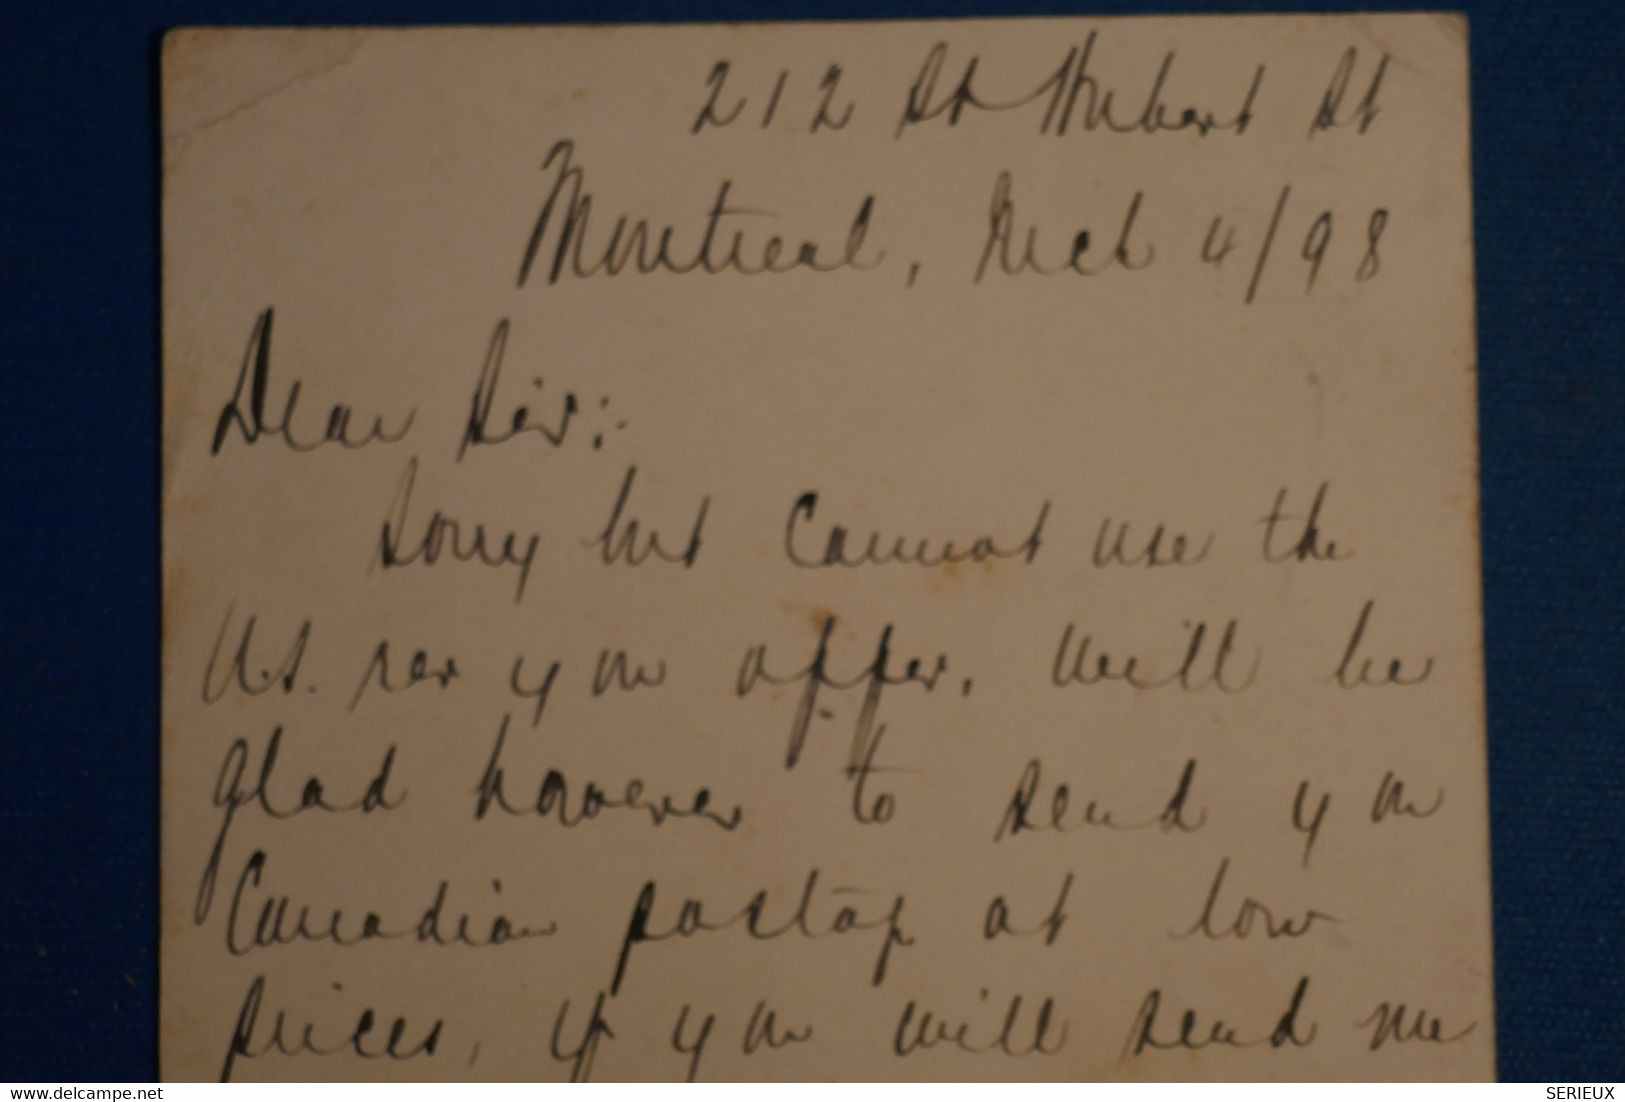 212 St Hubert St
Montreal, Mch 4/98
Dear Sir:-
Sorry but cannot use the
U.S. rev you offer. Will be
glad however to send you
Canadian postage at low
prices, if you will send me
delcampe.net
SERIEUX